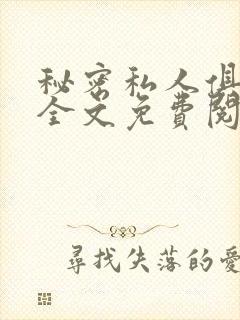 秘密私人俱
全文免費閱
尋找失落的愛